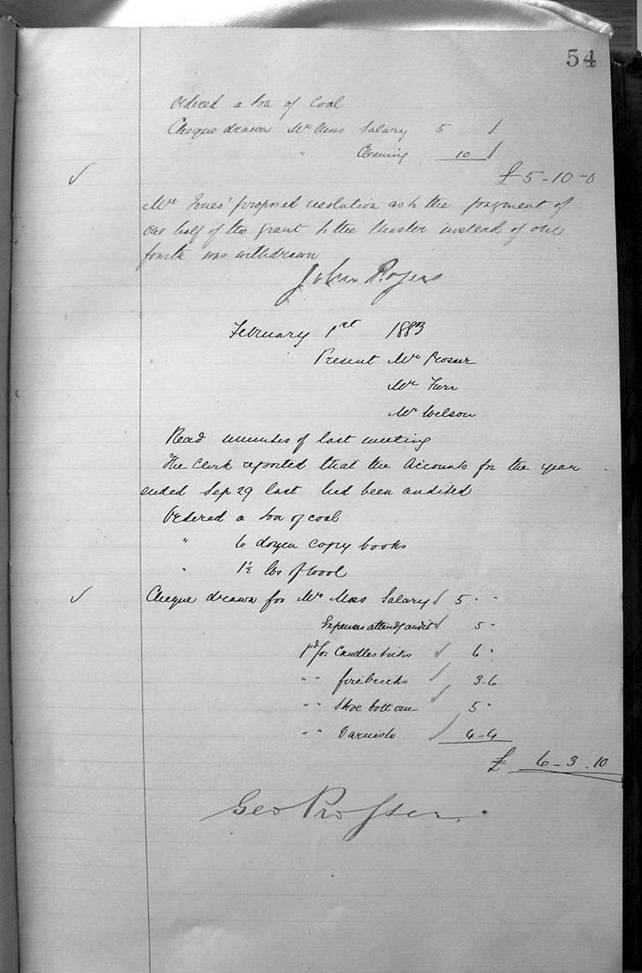 54
Ordered a ton of Coal
Cheque drawn Mr Moss Salary 5
" Cleaning 10
£5-10-0
Mr Jones' proposed resolution as to the payment of
one half of the grant to the Master instead of one
fourth was withdrawn
John Rogers
February 1st 1883
Present Mr Prosser
Mr Turr
Mr Wilson
Read minutes of last meeting
The Clerk reported that the Accounts for the year
ended Sep 29 last had been audited
Ordered a ton of coal
" 6 dozen copy books
" 1½ lbs of wool
Cheque drawn for Mr Moss Salary 5 " "
Expenses attendg audit 5 "
pd for Candlesticks 6 "
" " firebricks 3-6
" " Stove bottom 5 "
" " Varnish 4-4
£ 6-3-10
Geo Prosser